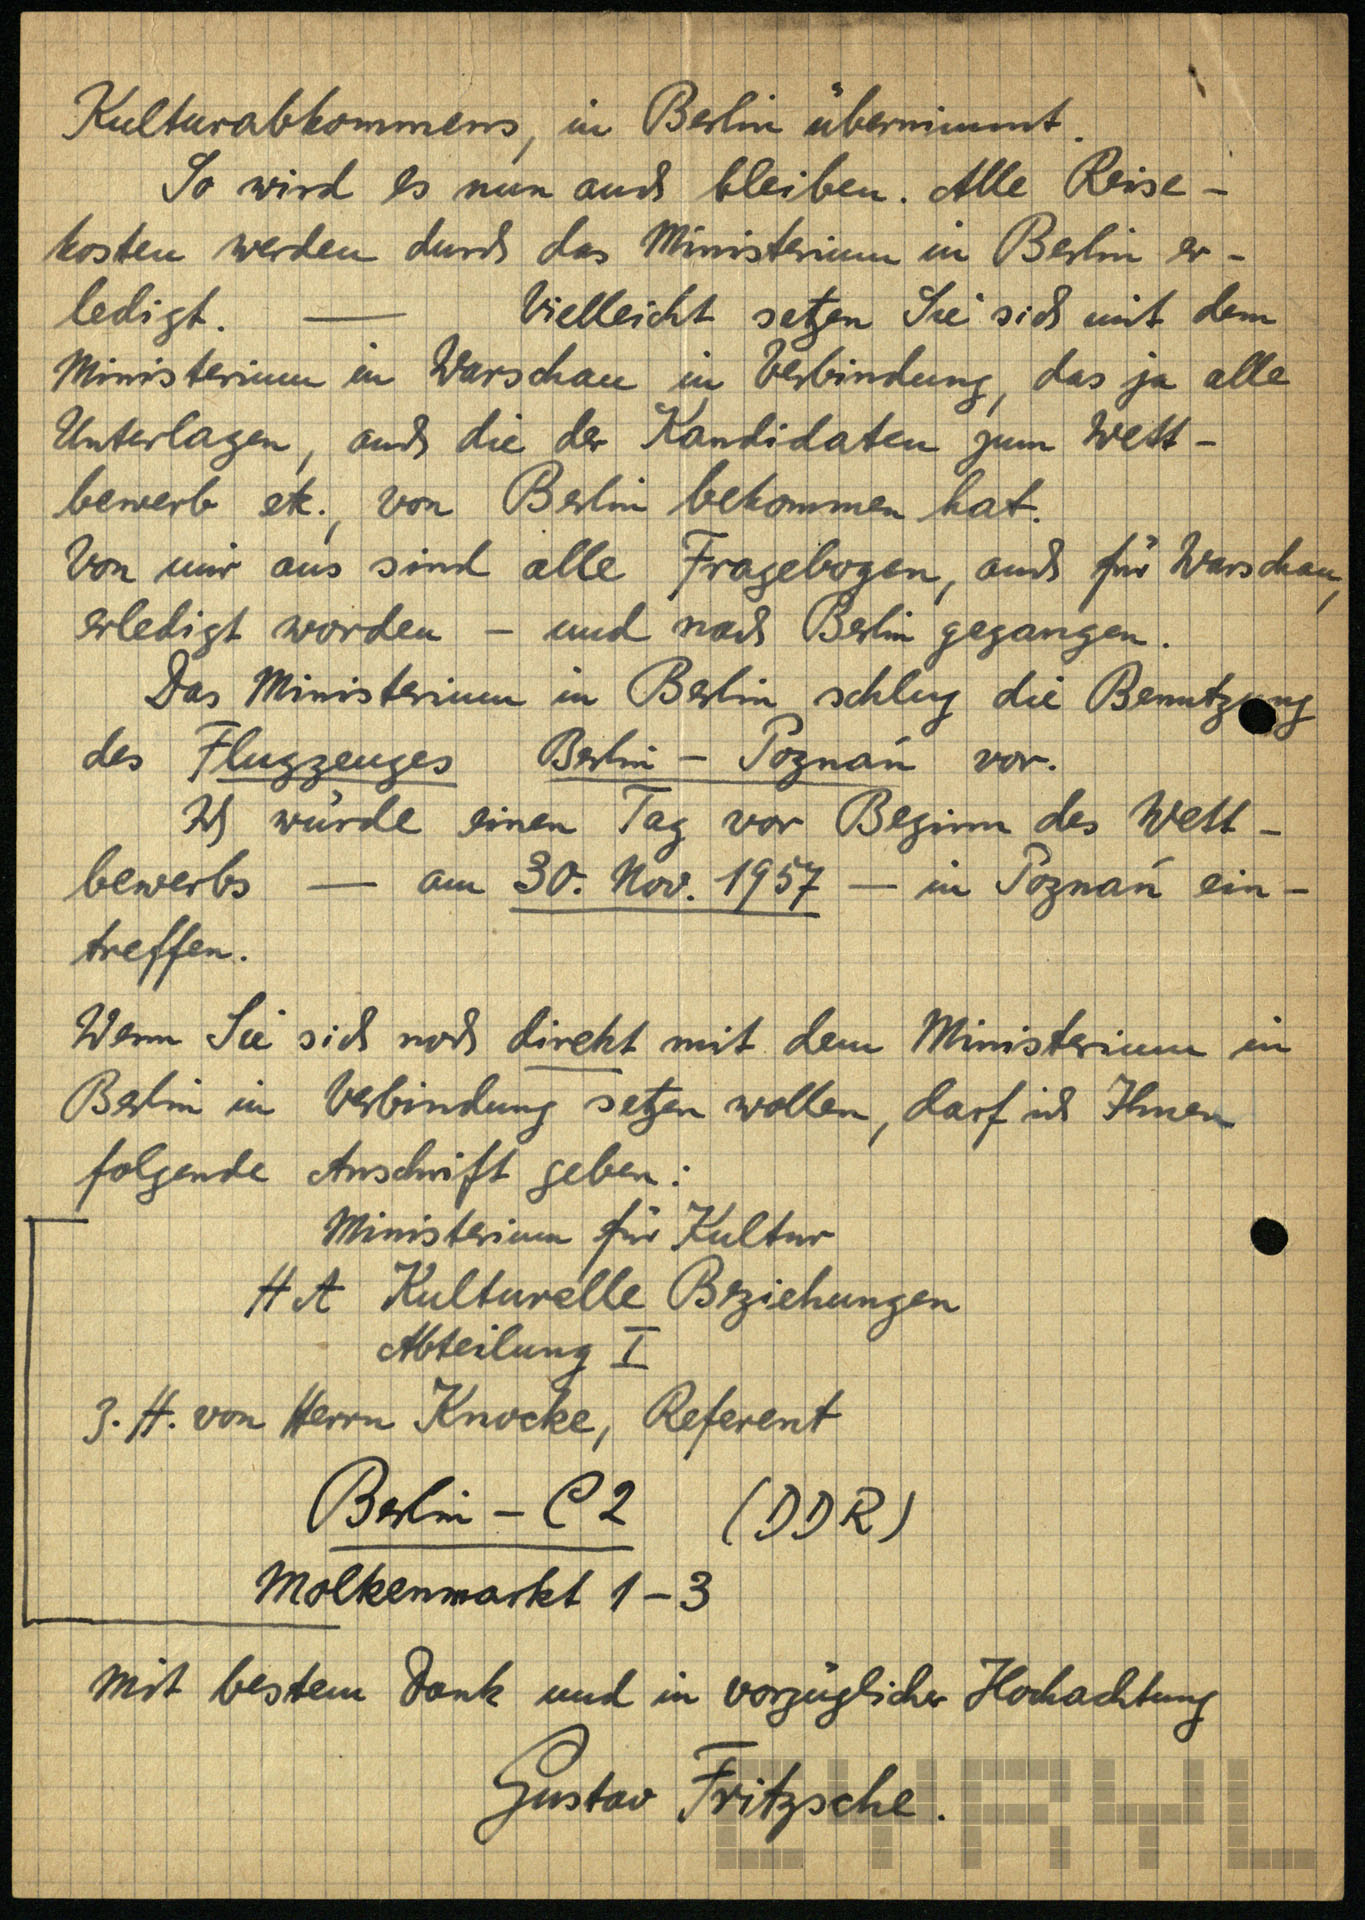 Kulturabkommens, in Berlin übernimmt.
So wird es nun auch bleiben. Alle Reise-
kosten werden durch das Ministerium in Berlin er-
ledigt. — Vielleicht setzen Sie sich mit dem
Ministerium in Warschau in Verbindung, das ja alle
Unterlagen, auch die der Kandidaten zum Wett-
bewerb etc., von Berlin bekommen hat.
Von mir aus sind alle Fragebogen, auch für Warschau,
erledigt worden – und nach Berlin gegangen.
Das Ministerium in Berlin schlug die Benutzung
des Flugzeuges Berlin – Poznań vor.
Ich würde einen Tag vor Beginn des Wett-
bewerbs — am 30. Nov. 1957 — in Poznań ein-
treffen.
Wenn Sie sich noch direkt mit dem Ministerium in
Berlin in Verbindung setzen wollen, darf ich Ihnen
folgende Anschrift geben:
Ministerium für Kultur
HA Kulturelle Beziehungen
Abteilung I
z. H. von Herrn Knocke, Referent
Berlin – C2 (DDR)
Molkenmarkt 1–3
Mit bestem Dank und in vorzüglicher Hochachtung
Gustav Fritzsche.
ZYRYL